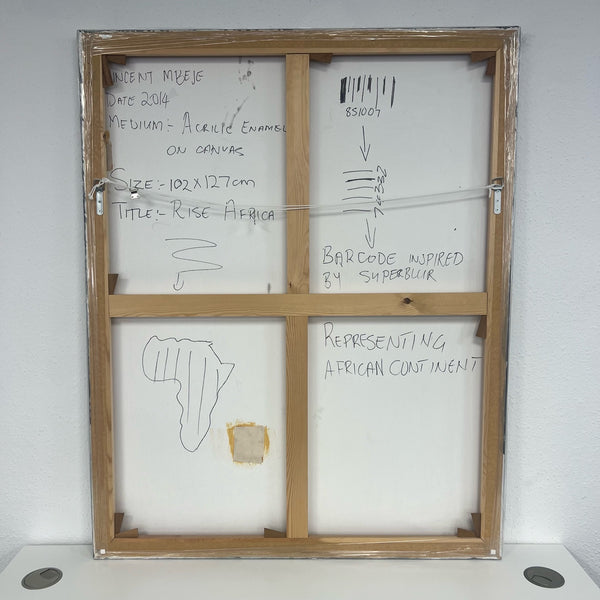 VINCENT MBEJE
DATE 2014
MEDIUM:- ACRILIC ENAMEL
ON CANVAS
SIZE:- 102 X 127cm
TITLE:- RISE AFRICA
851007
BARCODE INSPIRED
BY SUPERBLUR
REPRESENTING
AFRICAN CONTINENT